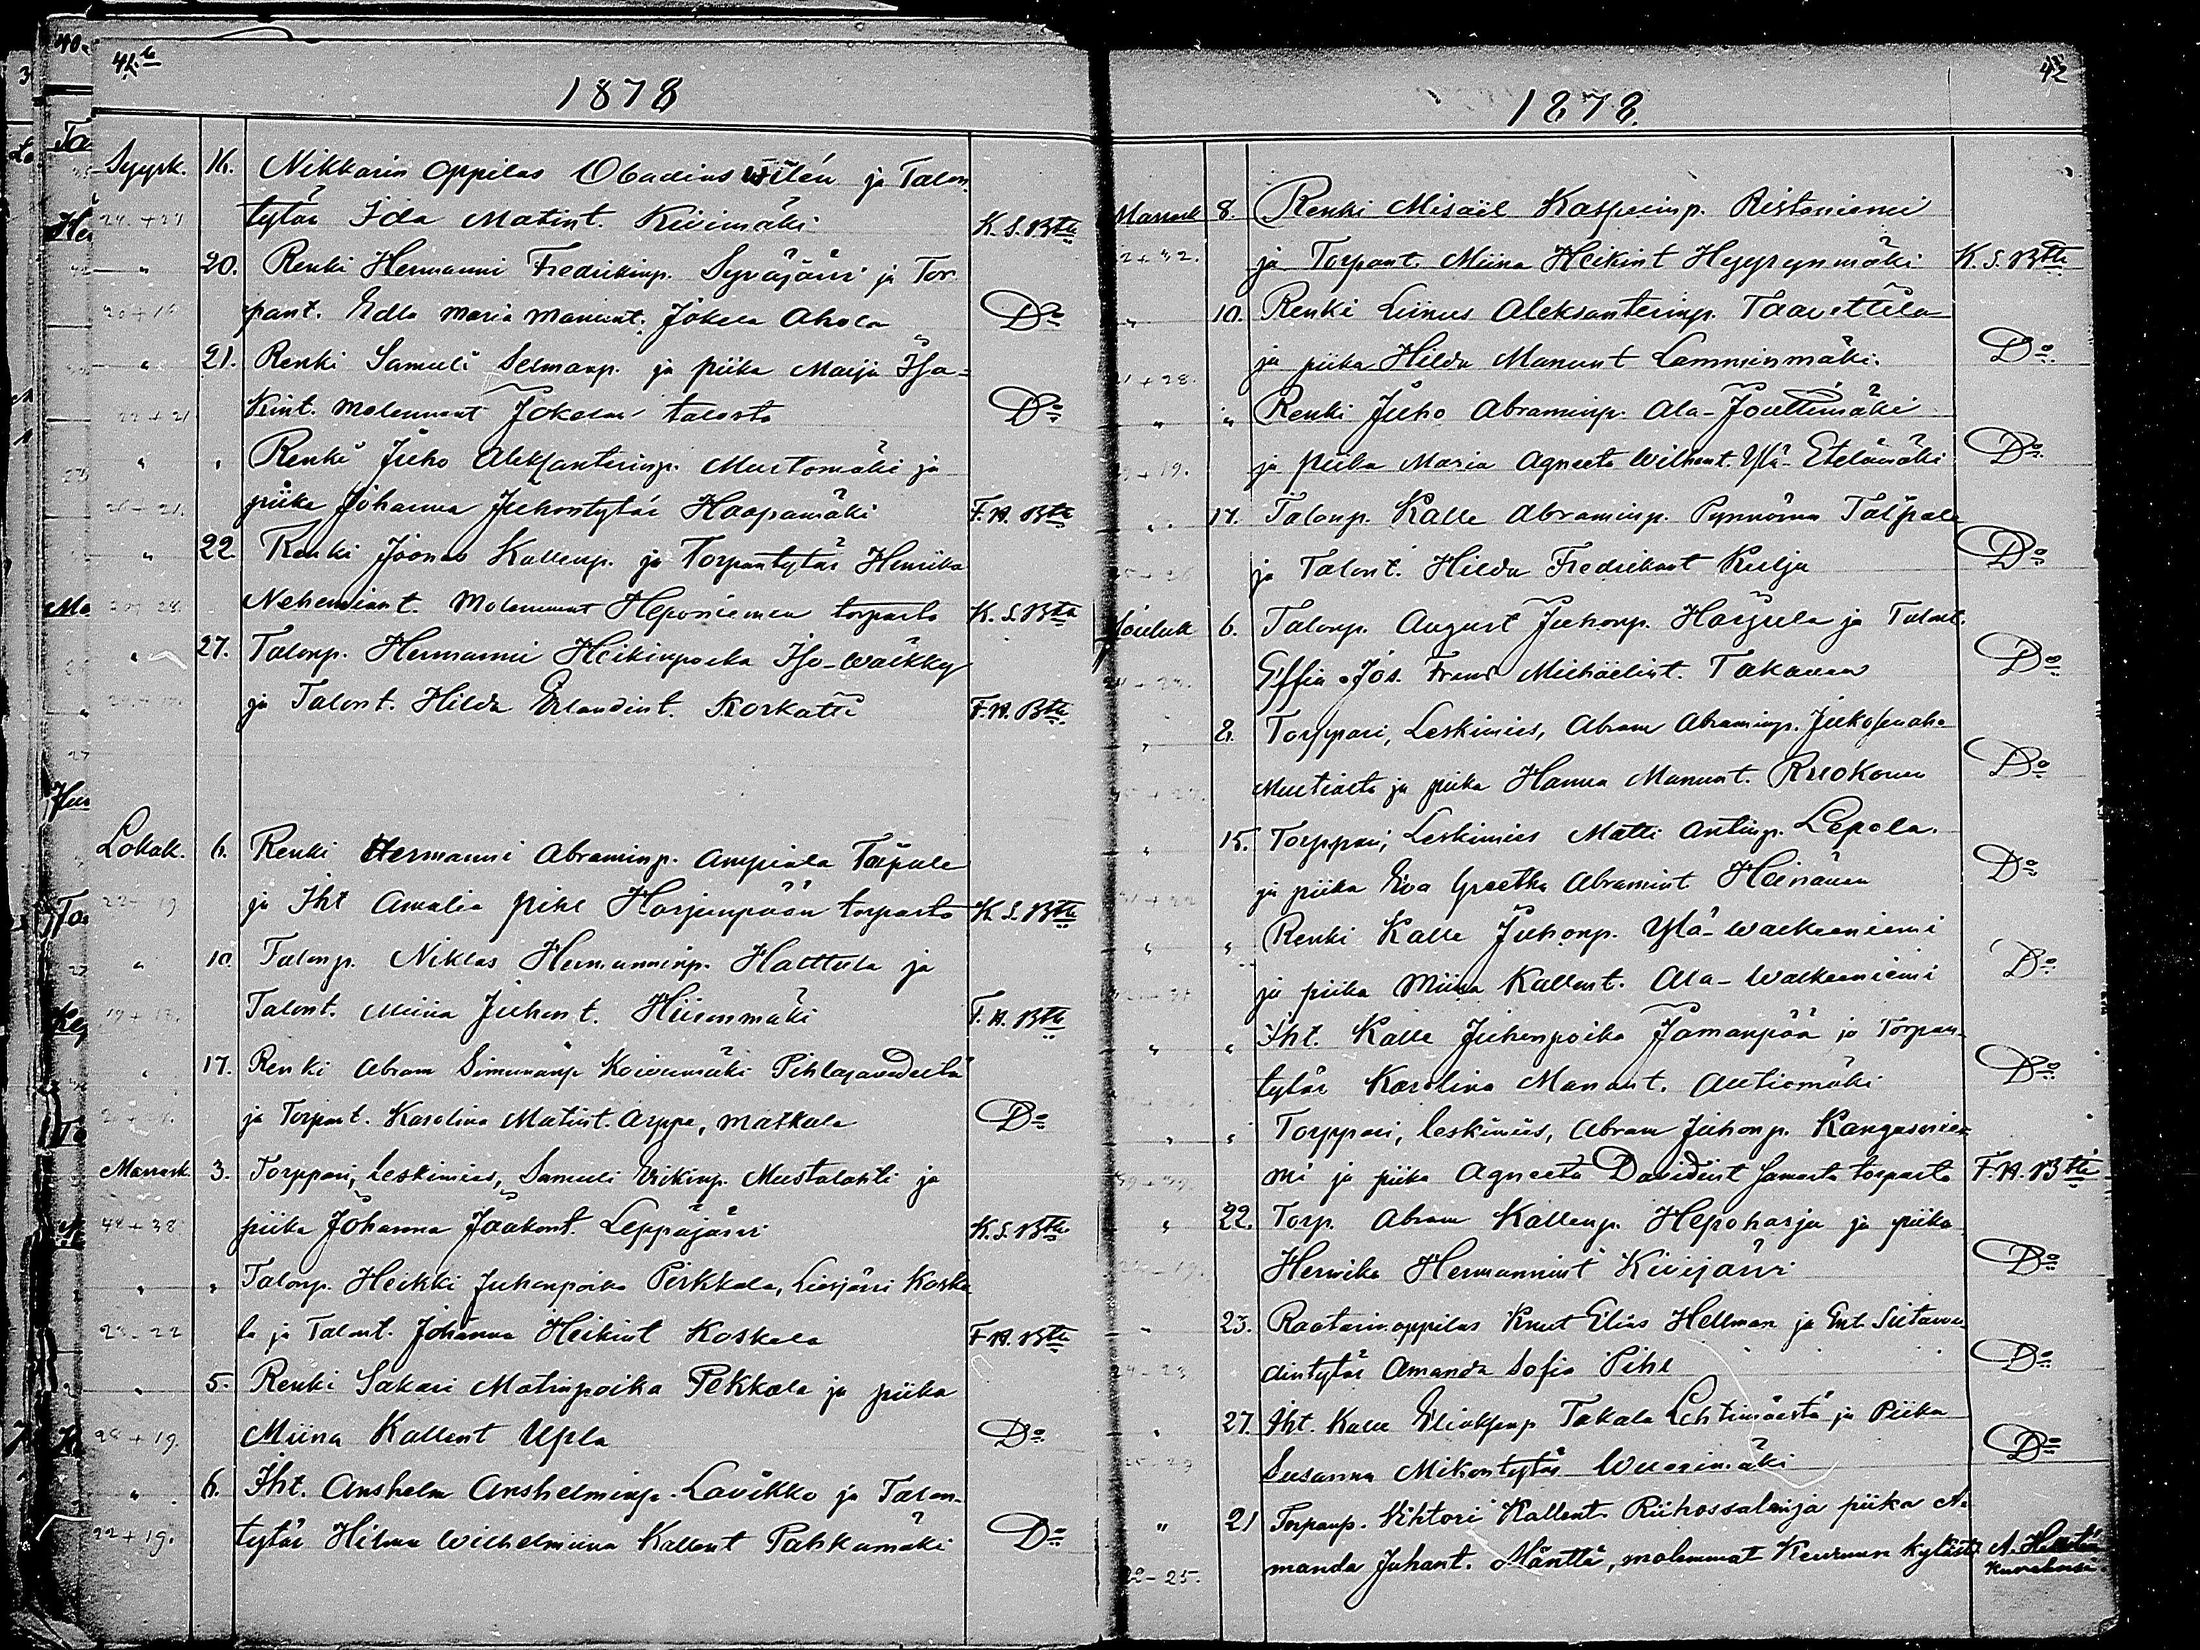 41.b
1878
Syysk. 16. Nikkarin oppilas Obadius Wilén ja Talon
24 + 27 tytär Ida Matint. Kivimäki K. S. Btti
" 20. Renki Hermanni Fredrikinp. Syväjärvi ja Tor
20 + 16 pant. Edla Maria Manunt. Jokela Ahola Do
" 21. Renki Samuli Selmanp. ja piika Maija Isa=
22 + 21 kint. molemmat Jokelan talosta Do
" " Renki Juho Aleksanterinp. Mustomäki ja
26 + 21. piika Johanna Juhontytär Haapamäki F. H. Btti
" 22 Renki Joonas Kallenp. ja Torpantytär Henrika
Nehemiant. Molemmat Heponiemen torpasta K. S. Btti
" 27. Talonp. Hermanni Heikinpoika Iso-Waikky
ja Talont. Hilda Erlandint. Korkatti F. H. Btti
Lokak. 6. Renki Hermanni Abraminp. Ampiala Taipale
23 + 19 ja Iht Amalia Pihl Harjunpään torpasta K. S. Btti
" 10 Talonp. Niklas Hermanninp. Hattula ja
19 + 17. Talont. Miina Juhont. Hiironmäki F. H. Btti
" 17. Renki Abram Simunanp Koivumäki Pihlajavedeltä
ja Torpant. Karolina Matint. Arppe, Matkala Do
Marrask 3. Torppari, leskimies, Samuli Erikinp. Mustalahti ja
48 + 38 piika Johanna Jaakont. Leppäjärvi K. S. Btti
" " Talonp. Heikki Juhonpoika Pirkkala, Liesjärvi Koske
23 - 22 la ja Talont. Johanna Heikint Koskela F. H. Btti
" 5. Renki Sakari Matinpoika Pekkala ja piika
28 + 19. Miina Kallent Upla Do
" 6. Iht. Anshelm Anshelminp. Lavikko ja Talon-
22 + 19. tytär Hilma Wilhelmiina Kallent Pahkamäki Do
42
1878.
Marrask 8. Renki Misaël Kasperinp. Ristoniemi
ja Torpant. Miina Heikint Hyyrynmäki K. S. Btti
" 10. Renki Liinus Aleksanterinp. Taavettila
ja piika Hilda Manunt Lamminmäki. Do
" " Renki Juho Abraminp. Ala-Jouttimäki
ja piika Maria Agneeta Wilhemt. Ylä-Etelämäki Do
" 17. Talonp. Kalle Abraminp. Pynnönen Taipale
ja Talont. Hilda Fredrikint Kulju Do
Jouluk 6. Talonp. August Juhonp. Harjula ja Talont.
Effia Jos. Frans Michäelint. Takanen Do
" 8. Torppari, Leskimies, Abram Abraminp. Jukosenaho
Multialta ja piika Hanna Manunt. Ruokonen Do
" 15. Torppari, Leskimies Matti Antinp. Lepola.
ja piika Eva Greetha Abramint Heinänen Do
" " Renki Kalle Juhonp. Ylä-Walkeaniemi
ja piika Miina Kallent. Ala-Walkeaniemi Do
" " Iht. Kalle Juhonpoika Jamanpää ja Torpan-
tytär Karolina Manunt. Autiomäki Do
" " Torppari, leskimies, Abram Juhonp. Kangasnie=
mi ja piika Agneeta Davidint samasta torpasta F. H. Btti
" 22. Torp. Abram Kallenp. Hepoharju ja piika
Henrika Hermannint Kivijärvi Do
" 23. Raatarin oppilas Knut Elias Hellman ja Ent Sutarin
dintytär Amanda Sofia Pihl Do
" 27. Iht. Kalle Eliaksenp Takala Lehtimäestä ja Piika
Susanna Mikontytär Wuorimäki Do
" 21 Torpanp. Vihtori Kallent. Riihossalmi ja piika A-
22-25. manda Juhant. Mänttä, molemmat Keuruun kylästä.